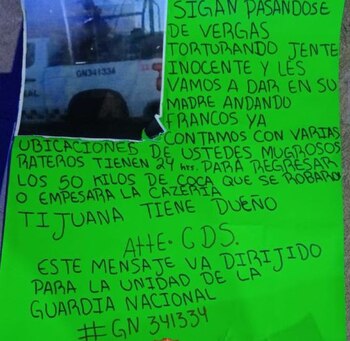 GN341334
SIGAN PASANDOSE
DE VERGAS
TORTURANDO JENTE
INOCENTE Y LES
VAMOS A DAR EN SU
MADRE ANDANDO
FRANCOS YA
CONTAMOS CON VARIAS
UBICACIONES DE USTEDES MUGROSOS
RATEROS TIENEN 24 hrs. PARA REGRESAR
LOS 50 KILOS DE COCA QUE SE ROBARON
O EMPESARA LA CAZERIA
TIJUANA TIENE DUEÑO
ATTE. CDS.
ESTE MENSAJE VA DIRIJIDO
PARA LA UNIDAD DE LA
GUARDIA NACIONAL
#GN 341334